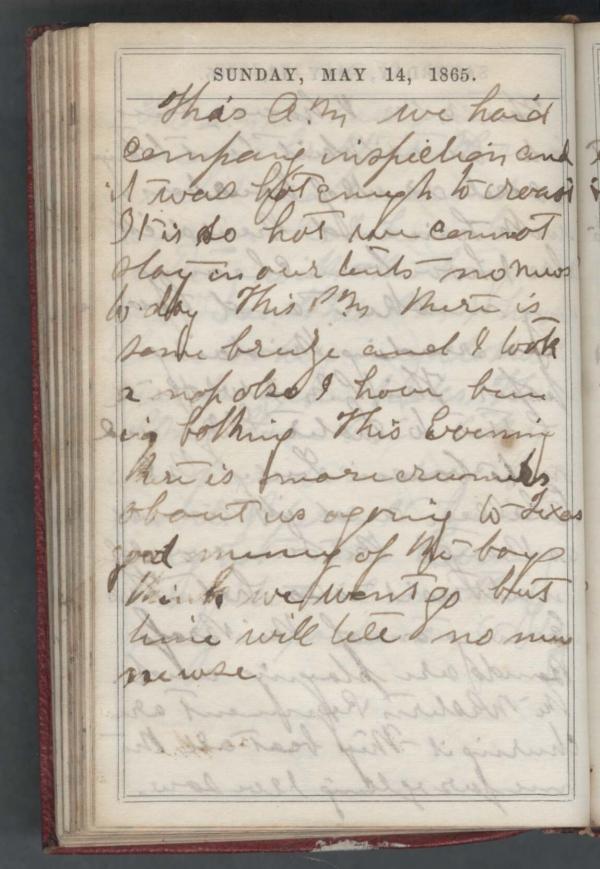 SUNDAY, MAY 14, 1865.
This A.M we had
company inspection and
it was hot enough to roast
It is so hot we cannot
stay in our tents no news
to day This P.M there is
some breize and I took
a nap also I have been
in bathing This Evening
there is more rumers
about us agoing to Texas
good meney of the boys
think we wont go but
time will tell no mor
newse